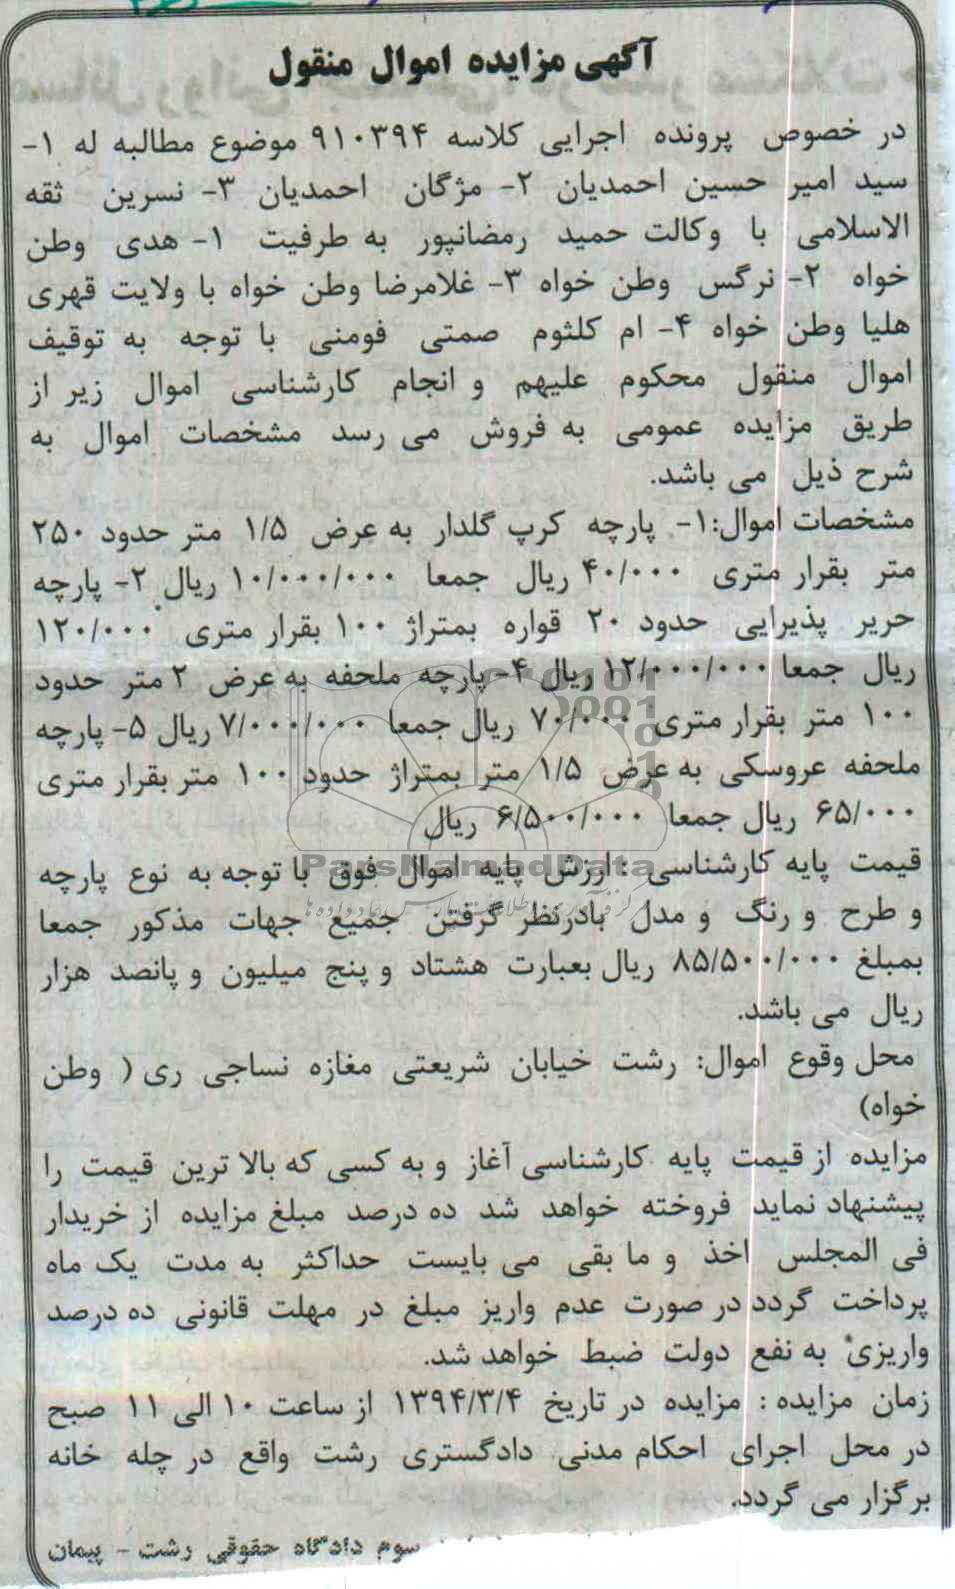 آگهی مزایده اموال منقول
در خصوص پرونده اجرایی کلاسه ۹۱۰۳۹۴ موضوع مطالبه له ۱-
سید امیر حسین احمدیان ۲- مژگان احمدیان ۳- نسرین ثقه
الاسلامی با وکالت حمید رمضانپور به طرفیت ۱- هدی وطن
خواه ۲- نرگس وطن خواه ۳- غلامرضا وطن خواه با ولایت قهری
هلیا وطن خواه ۴- ام کلثوم صمتی فومنی با توجه به توقیف
اموال منقول محکوم علیهم و انجام کارشناسی اموال زیر از
طریق مزایده عمومی به فروش می رسد مشخصات اموال به
شرح ذیل می باشد.
مشخصات اموال:۱- پارچه کرپ گلدار به عرض ۱/۵ متر حدود ۲۵۰
متر بقرار متری ۴۰/۰۰۰ ریال جمعا ۱۰/۰۰۰/۰۰۰ ریال ۲- پارچه
حریر پذیرایی حدود ۲۰ قواره بمتراژ ۱۰۰ بقرار متری ۱۲۰/۰۰۰
ریال جمعا ۱۲/۰۰۰/۰۰۰ ریال ۴- پارچه ملحفه به عرض ۲ متر حدود
۱۰۰ متر بقرار متری ۷۰/۰۰۰ ریال جمعا ۷/۰۰۰/۰۰۰ ریال ۵- پارچه
ملحفه عروسکی به عرض ۱/۵ متر بمتراژ حدود ۱۰۰ متر بقرار متری
۶۵/۰۰۰ ریال جمعا ۶/۵۰۰/۰۰۰ ریال
ParsNamadData
قیمت پایه کارشناسی : ارزش پایه اموال فوق با توجه به نوع پارچه
و طرح و رنگ و مدل بادرنظر گرفتن جمیع جهات مذکور جمعا
بمبلغ ۸۵/۵۰۰/۰۰۰ ریال بعبارت هشتاد و پنج میلیون و پانصد هزار
ریال می باشد.
محل وقوع اموال: رشت خیابان شریعتی مغازه نساجی ری ( وطن
خواه)
مزایده از قیمت پایه کارشناسی آغاز و به کسی که بالا ترین قیمت را
پیشنهاد نماید فروخته خواهد شد ده درصد مبلغ مزایده از خریدار
فی المجلس اخذ و ما بقی می بایست حداکثر به مدت یک ماه
پرداخت گردد در صورت عدم واریز مبلغ در مهلت قانونی ده درصد
واریزی به نفع دولت ضبط خواهد شد.
زمان مزایده : مزایده در تاریخ ۱۳۹۴/۳/۴ از ساعت ۱۰ الی ۱۱ صبح
در محل اجرای احکام مدنی دادگستری رشت واقع در چله خانه
برگزار می گردد.
سوم دادگاه حقوقی رشت - پیمان